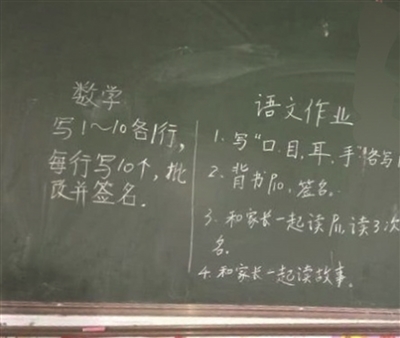 数学
写1～10各1行,
每行写10个,批
改并签名.
语文作业
1. 写“口、目、耳、手”各写1
2. 背书P10、签名.
3. 和家长一起读P11,读3次
名.
4. 和家长一起读故事。